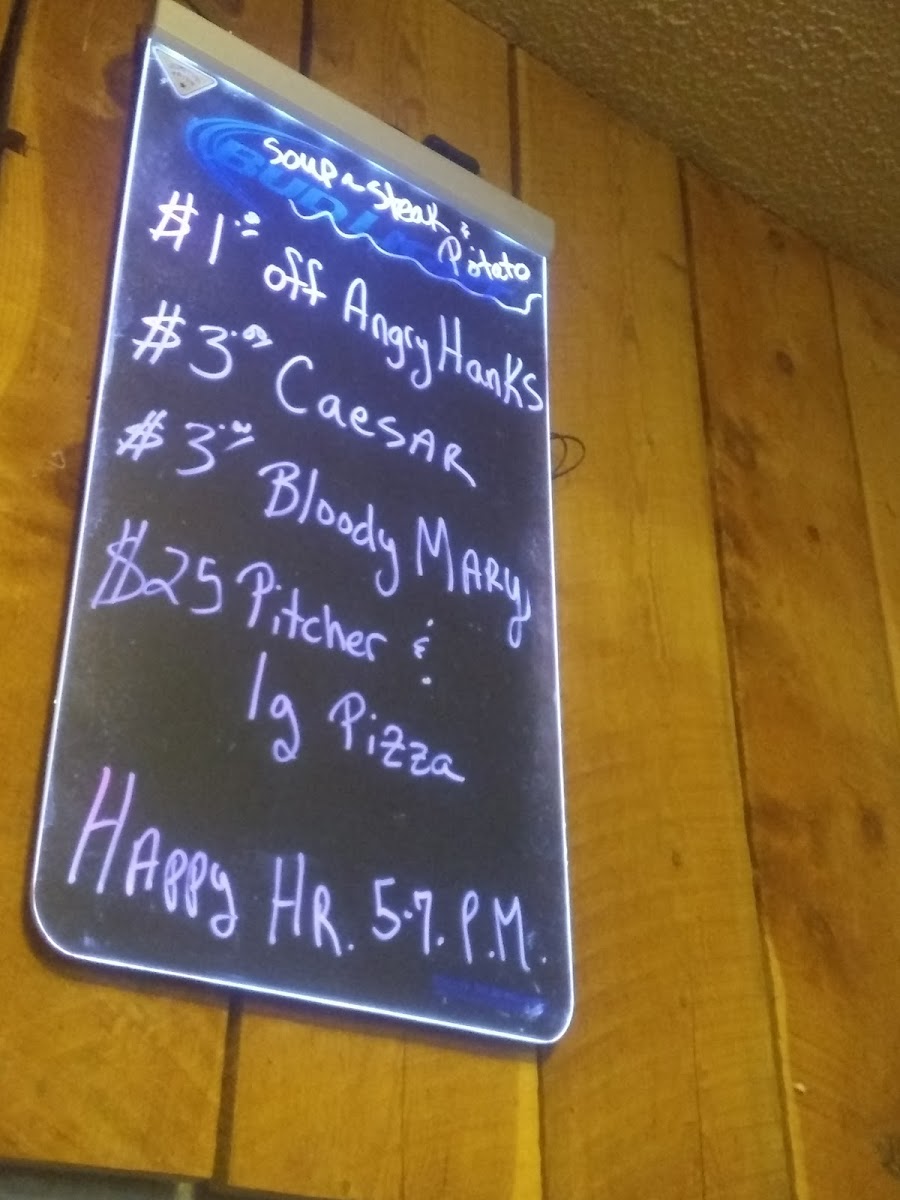 Soup ~ Steak &
Potato
$1.00 off Angry Hanks
$3.00 Caesar
$3.00 Bloody Mary
$25 Pitcher &
lg Pizza
Happy Hr. 5-7. P.M.